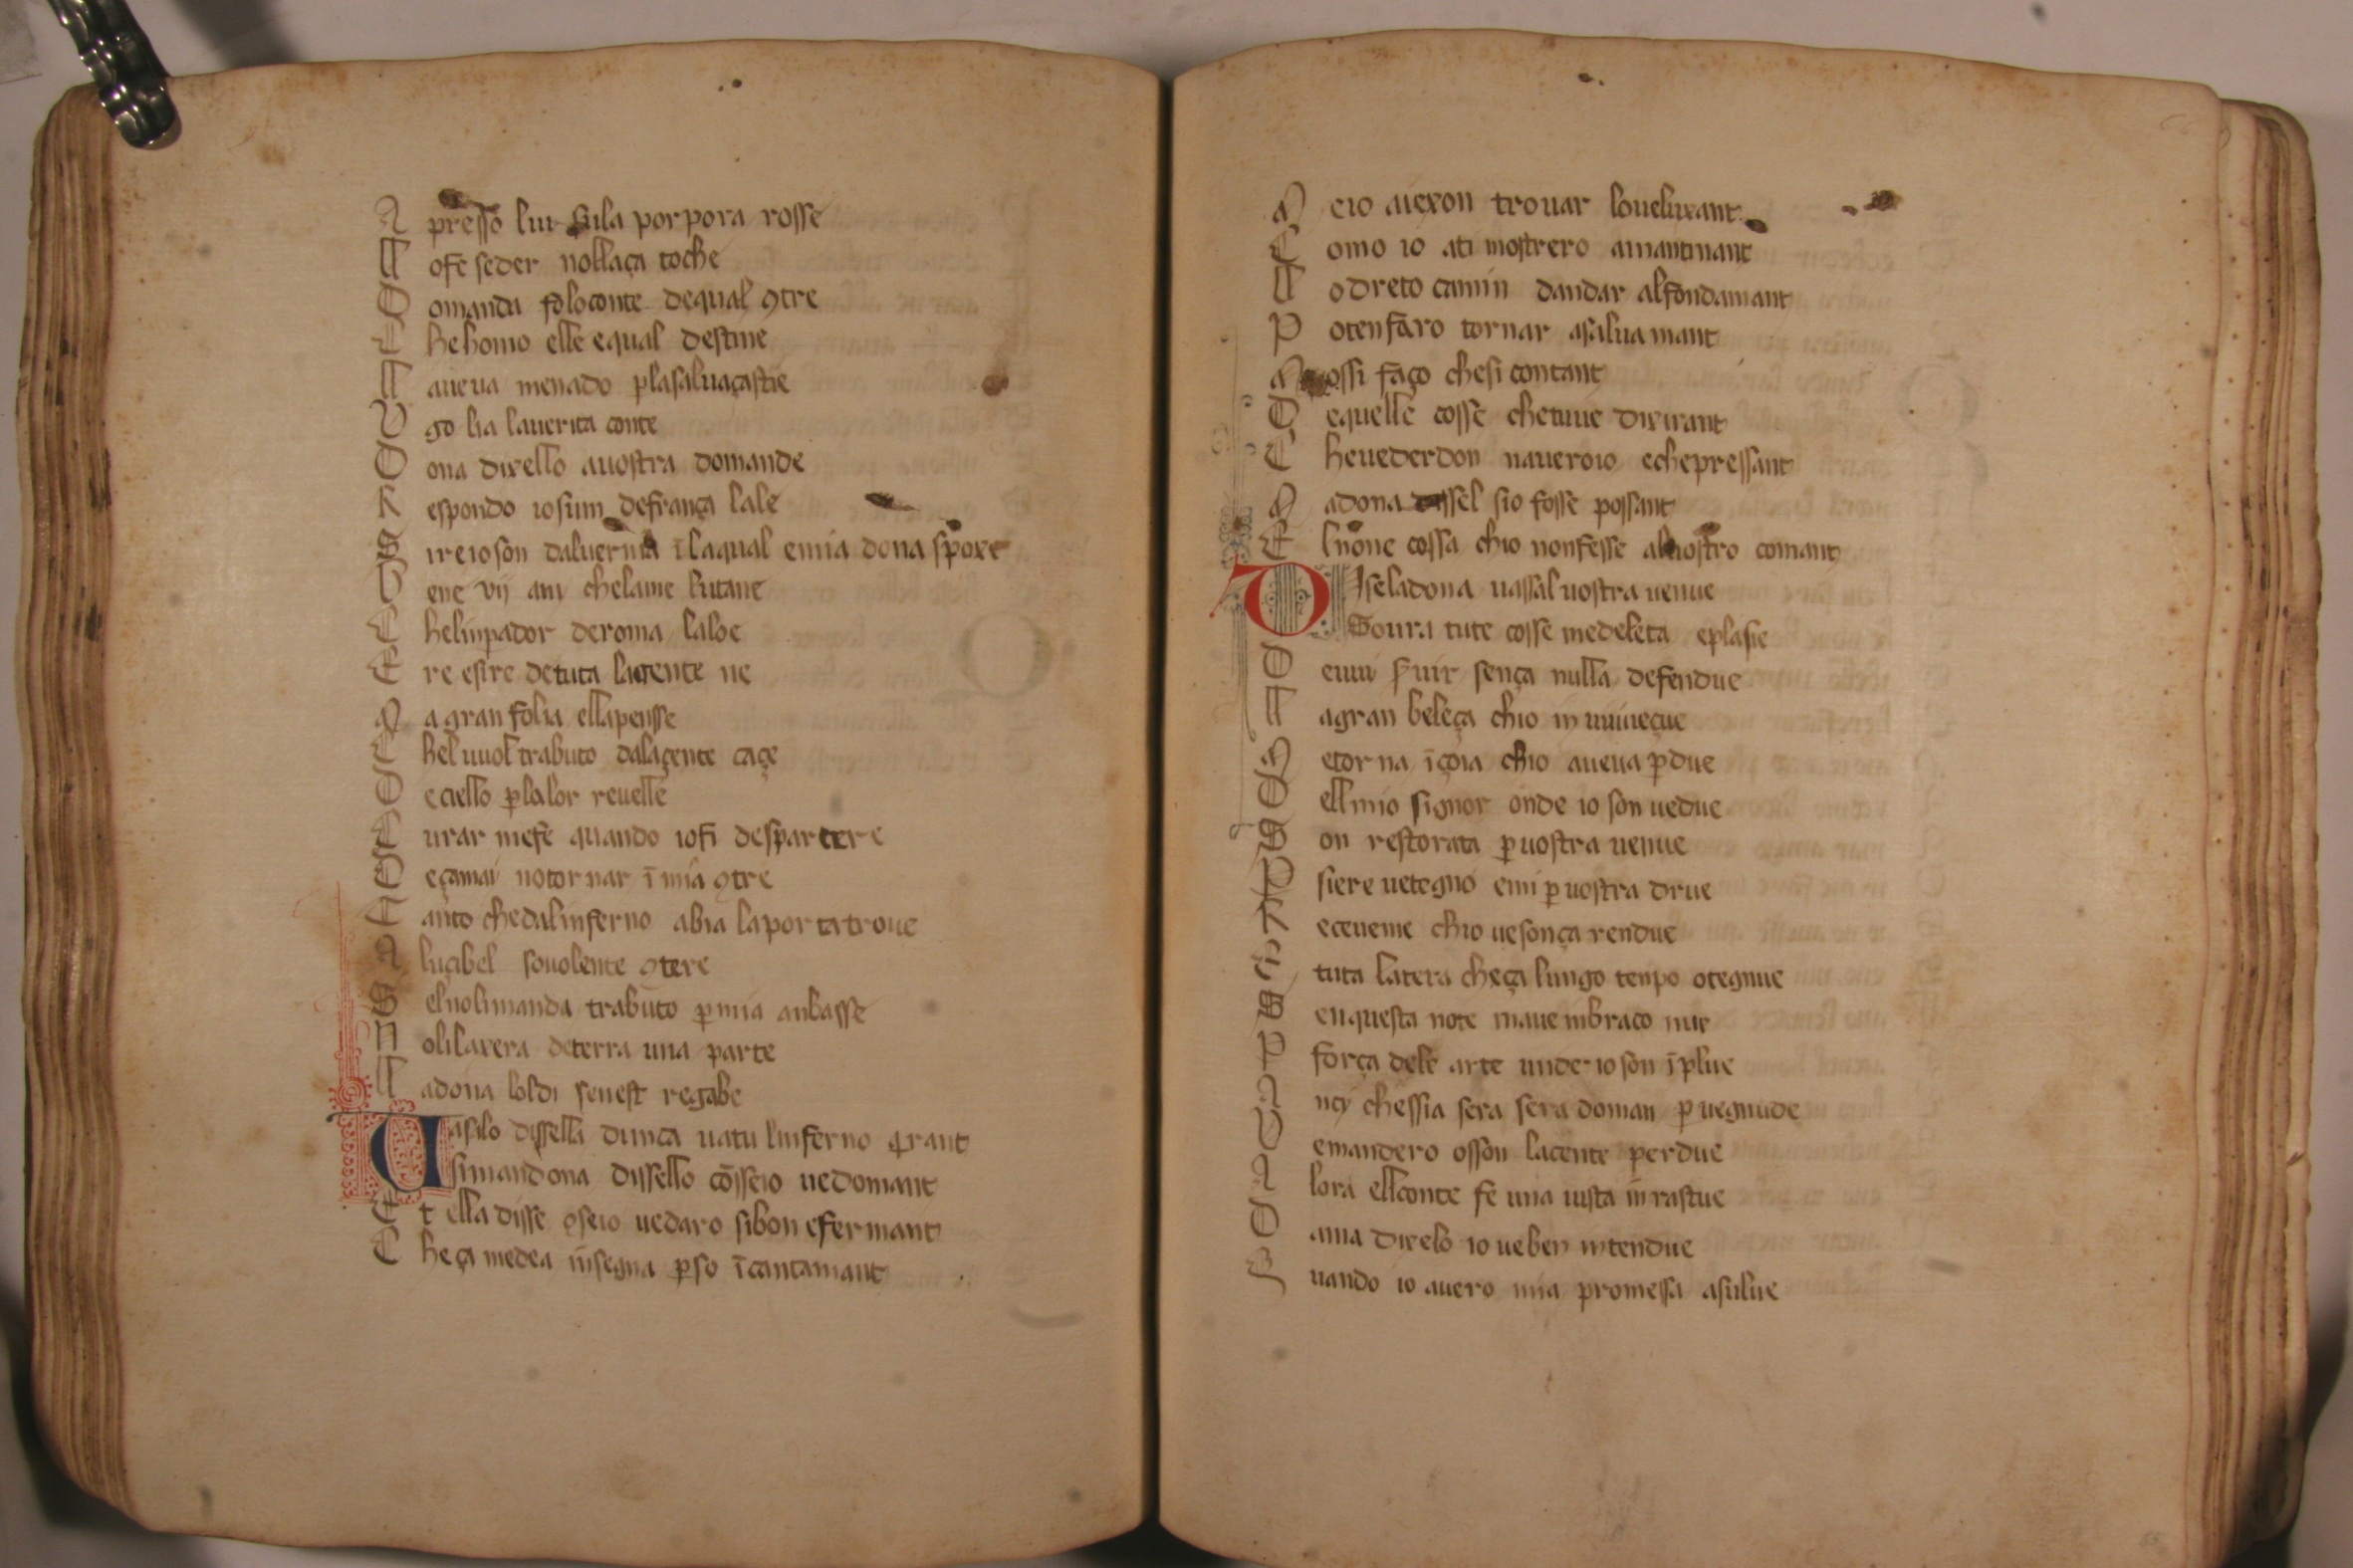 A presso lui sula porpora rosse
L ofe seder nollaça toche
D omanda folo conte dequal 9tre
C hehomo elle equal destine
L aueua menado plasaluaçastie
V go lia lauerita conte
D ona dirello auostra domande
R espondo iosum defrança lale
S ireioson daluernia ĩlaqual emia dona spoxe
B ene vij ani chelame lutane
C helinpador deroma laloe
E re esire detuta lagente ne
M a gran folia ellapensse
C hel uuol trabuto dalaçente caçe
D eciello plalor reuelle
C urar mefe quando iofi despartere
D eçamai notornar ĩ mia 9tre
T anto chedalinferno abia laportatroue
A luçibel souolente 9tere
S eluolimanda trabuto pmia anbasse
N olilaxera deterra una parte
L adona loldi seuest regabe
Uasilo dissella dunca uatu linferno qrant
simandona dissello cõsseio uedomant
E t ella disse 9seio uedaro sibon efermant
C heça medea insegna pso ĩcantamant
M eio aiexon trouar loueluxant
C omo io ati mostrero amantinant
L odreto camin dandar alfondamant
P otenfaro tornar asaluamant
M ossi faço chesi contant
D equelle cosse chetuue dixirant
C heuederdon naueroio echepressant
M adona dissel sio fosse possant
E lnone cossa chio nonfesse aluostro comant
Diseladona uassal uostra uenue
Soura tute cosse medeleta eplasie
D euui suir sença nulla defendue
L agran beleça chio in uuiueçue
M etorna ĩçoia chio aueua pdue
D ellmio signor onde io son uedue
S on restorata puostra uenue
P siere uetegno emi puostra drue
R eceueme chio uesonça rendue
E tuta latera cheça lungo tenpo otegnue
S enquesta note maue inbraço nue
P força dele arte unde io son ĩplue
A nçi chessia sera sera doman puegnude
V emandero osson lacente perdue
A lora ellconte fe una iusta inrastue
D ama direlo io ueben intendue
Q uando io auero mia promessa asulue